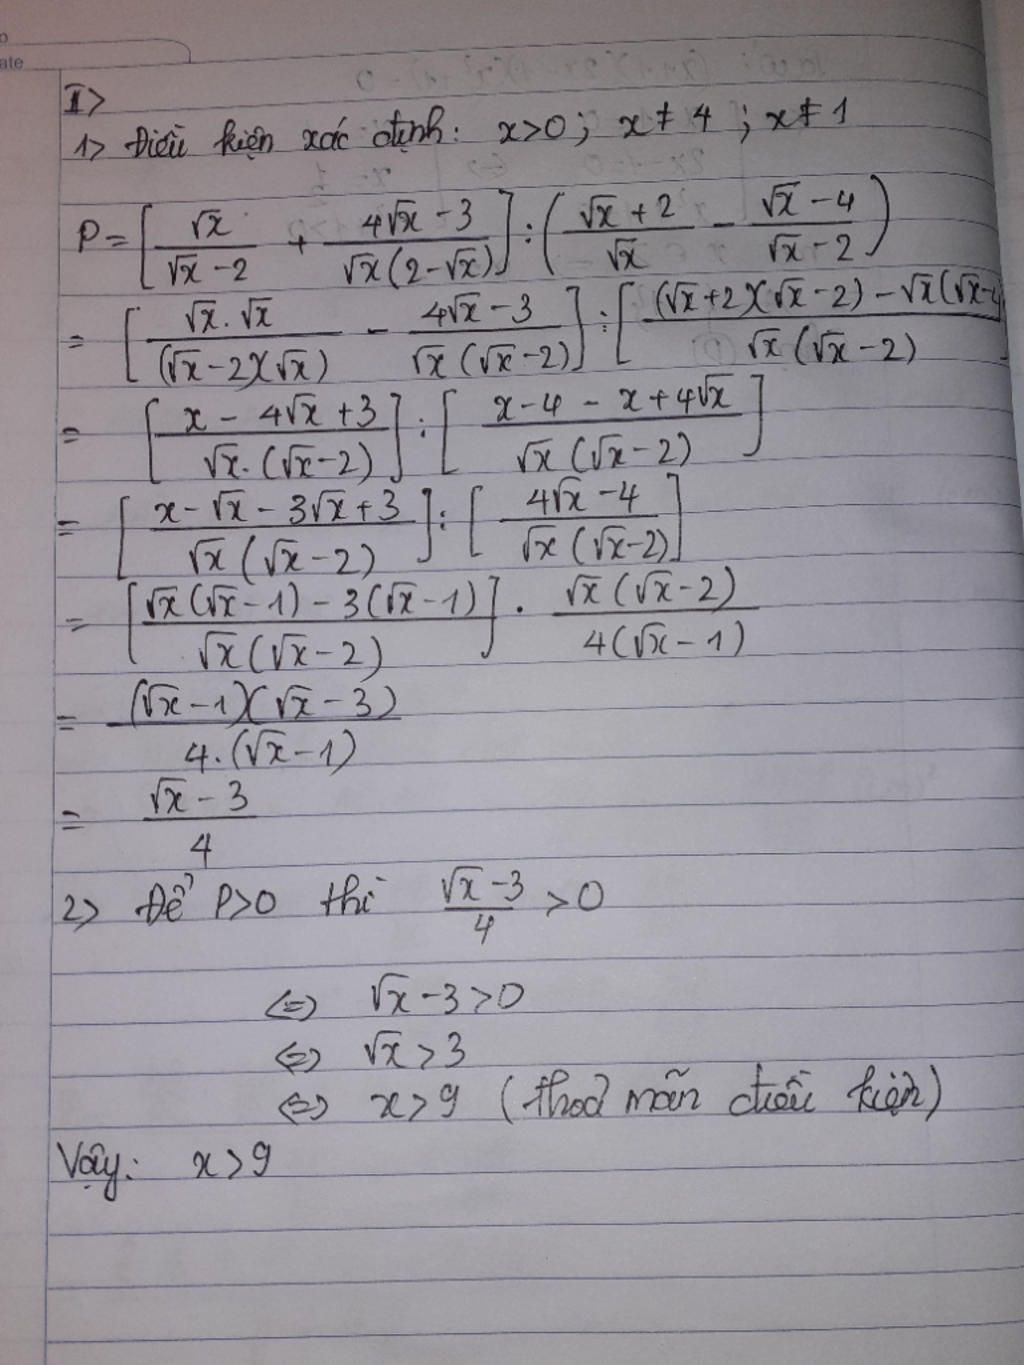 ate
I>
1> Điều kiện xác định: x>0; x ≠ 4 ; x ≠ 1
P = [√x/(√x - 2) + (4√x - 3)/(√x(2-√x))] : ((√x + 2)/√x - (√x - 4)/(√x - 2))
= [√x.√x/((√x-2)(√x)) - (4√x - 3)/(√x(√x-2))] : [((√x+2)(√x-2) - √x(√x-4
)/(√x(√x-2))
= [(x - 4√x + 3)/(√x.(√x-2))] : [(x-4 - x+4√x)/(√x(√x-2))]
= [(x-√x - 3√x+3)/(√x(√x-2))] : [(4√x - 4)/(√x(√x-2))]
= [(√x(√x-1) - 3(√x-1))/(√x(√x-2))] . √x(√x-2)/(4(√x-1))
= (√x-1)(√x-3)/(4.(√x-1))
= (√x - 3)/4
2> Để P>0 thì (√x - 3)/4 > 0
⇔ √x - 3 > 0
⇔ √x > 3
⇔ x > 9 (thoả mãn điều kiện)
Vậy: x > 9